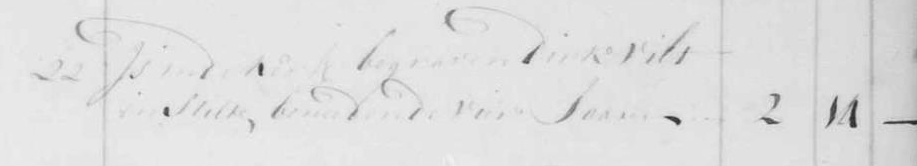 22 Is in de kerk begraven Dirk Vilt
in Stilte, beneeden de vier Jaaren 2 14 —